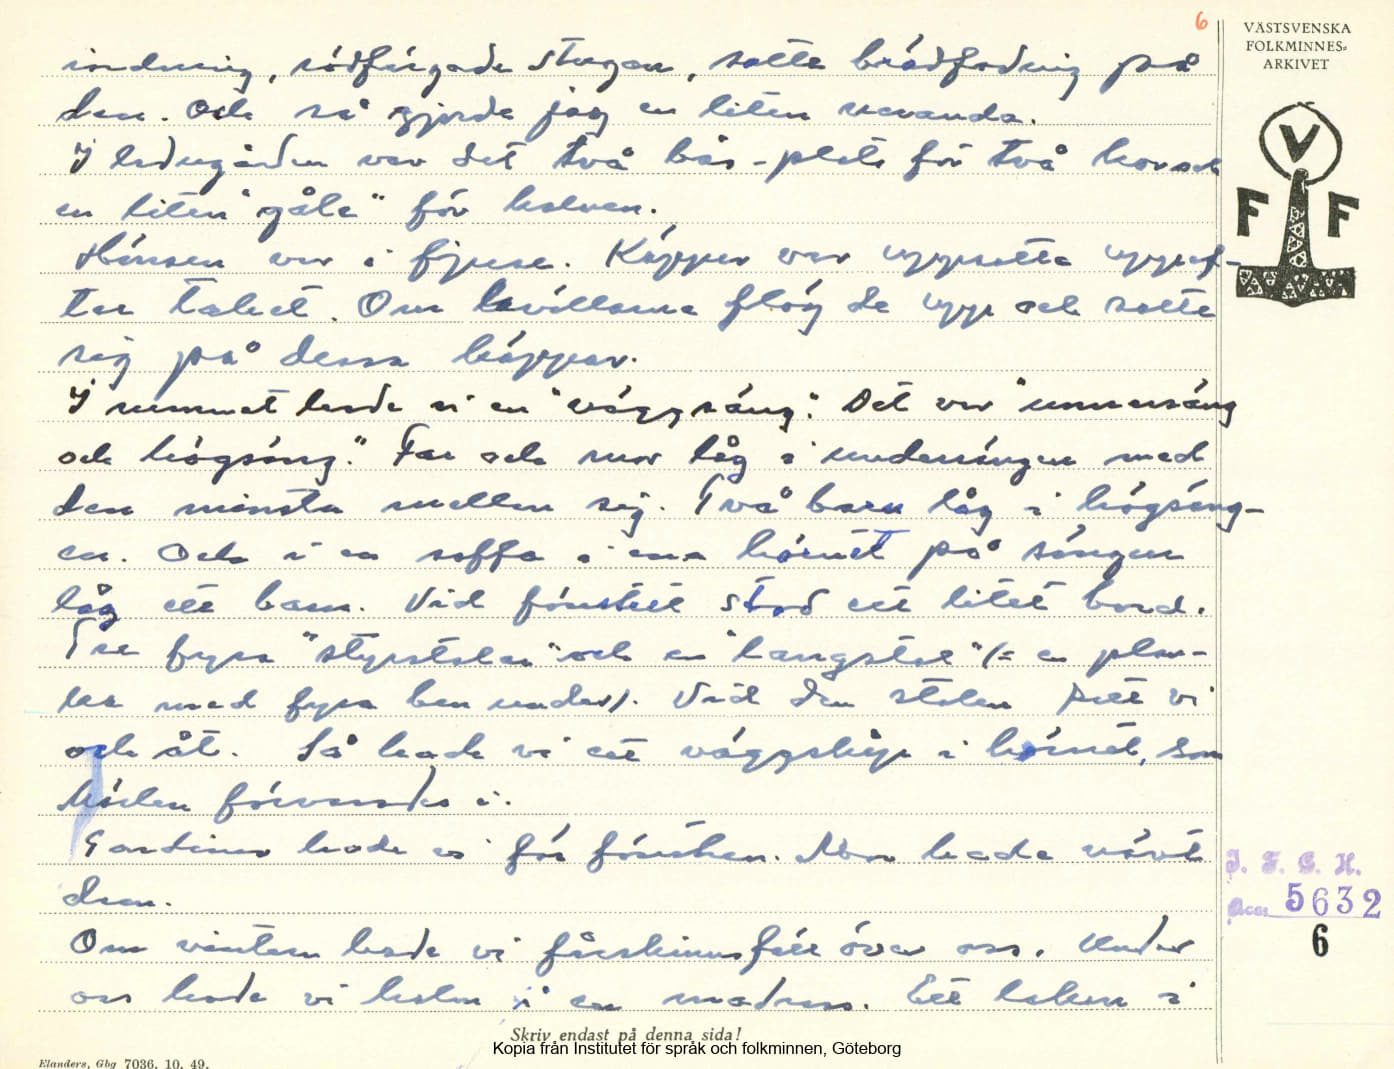 6
VÄSTSVENSKA
FOLKMINNES-
ARKIVET
V
F F
inredning, rödfärgade stugan, satte brädfodring på
den. Och så gjorde jag en liten veranda.
I ladugården var det två bås - plats för två kor och
en liten "gåle" för kalven.
Hönsen var i fjuse. Käppar var uppsatta uppef-
ter taket. Om kvällarna flög de upp och satte
sig på dessa käppar.
I rummet hade vi en "väggsäng". Det var "unnersäng
och högsäng." Far och mor låg i undersängen med
den minsta mellan sig. Två barn låg i högsäng-
en. Och i en soffa i ena hörnet på sängen
låg ett barn. Vid fönstret stod ett litet bord.
Tre fyra "styrstolar" och en "langstol" (= en plan-
ka med fyra ben under). Vid den stolen satt vi
och åt. Så hade vi ett väggskåp i hörnet, som
maten förvarades i.
Gardiner hade vi för fönstren. Mor hade vävt
dem.
Om vintern hade vi fårskinnsfäll över oss. Under
oss hade vi halm i en madrass. Ett lakan i
I. F. G. H.
Acc. 5632
6
Skriv endast på denna sida!
Kopia från Institutet för språk och folkminnen, Göteborg
Elanders, Gbg 7036. 10. 49.